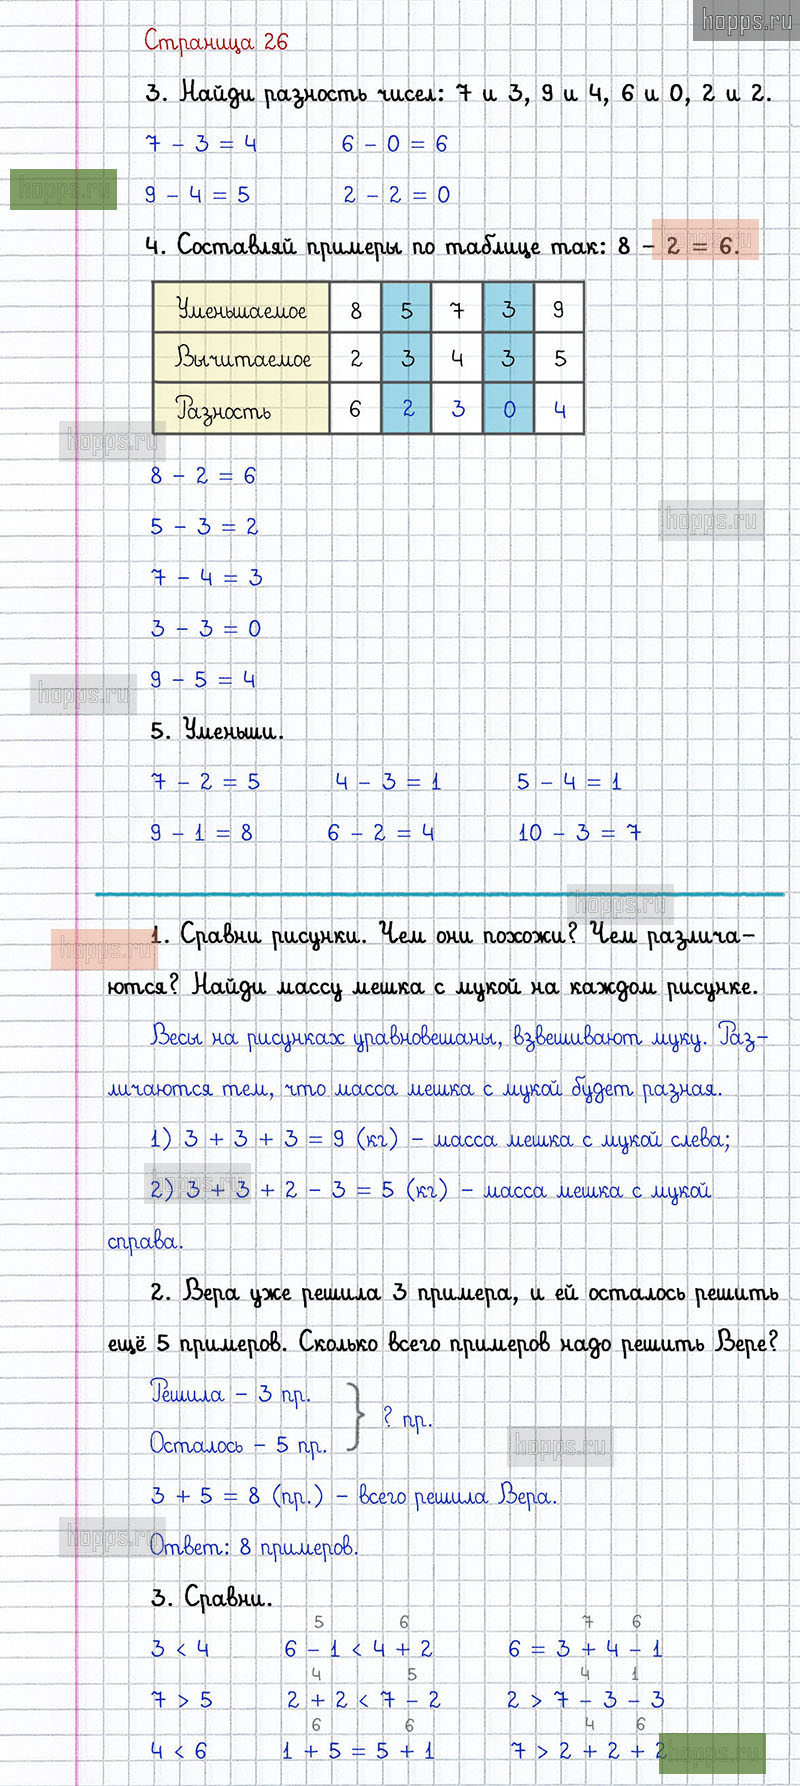 hopps.ru
Страница 26
3. Найди разность чисел: 7 и 3, 9 и 4, 6 и 0, 2 и 2.
7 - 3 = 4 6 - 0 = 6
hopps.ru
9 - 4 = 5 2 - 2 = 0
4. Составляй примеры по таблице так: 8 - 2 = 6.
Уменьшаемое 8 5 7 3 9
Вычитаемое 2 3 4 3 5
Разность 6 2 3 0 4
hopps.ru
8 - 2 = 6
5 - 3 = 2
hopps.ru
7 - 4 = 3
3 - 3 = 0
9 - 5 = 4
hopps.ru
5. Уменьши.
7 - 2 = 5 4 - 3 = 1 5 - 4 = 1
9 - 1 = 8 6 - 2 = 4 10 - 3 = 7
hopps.ru
1. Сравни рисунки. Чем они похожи? Чем различа-
hopps.ru
ются? Найди массу мешка с мукой на каждом рисунке.
Весы на рисунках уравновешаны, взвешивают муку. Раз-
личаются тем, что масса мешка с мукой будет разная.
1) 3 + 3 + 3 = 9 (кг) - масса мешка с мукой слева;
hopps.ru
2) 3 + 3 + 2 - 3 = 5 (кг) - масса мешка с мукой
справа.
2. Вера уже решила 3 примера, и ей осталось решить
ещё 5 примеров. Сколько всего примеров надо решить Вере?
Решила - 3 пр.
? пр.
Осталось - 5 пр.
hopps.ru
3 + 5 = 8 (пр.) - всего решила Вера.
hopps.ru
Ответ: 8 примеров.
3. Сравни.
5 6 7 6
3 < 4 6 - 1 < 4 + 2 6 = 3 + 4 - 1
4 5 4 1
7 > 5 2 + 2 < 7 - 2 2 > 7 - 3 - 3
6 6 4 6
4 < 6 1 + 5 = 5 + 1 7 > 2 + 2 + 2
hopps.ru